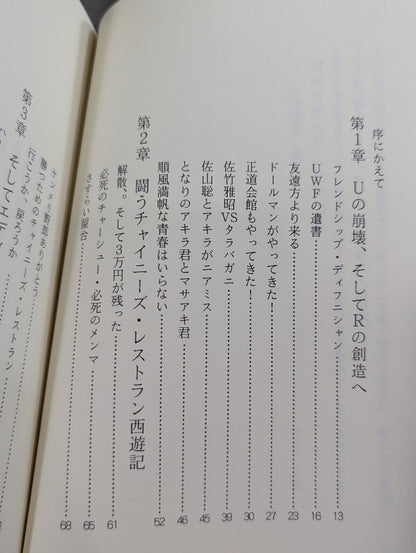 序にかえて
第1章 Uの崩壊、そしてRの創造へ
フレンドシップ・ディフニシャン 13
UWFの遺書 16
友遠方より来る 23
ドールマンがやってきた! 27
正道会館もやってきた! 30
佐竹雅昭VSタラバガニ 39
佐山聡とアキラがニアミス 45
となりのアキラ君とマサアキ君 46
順風満帆な青春はいらない 52
第2章 闘うチャイニーズ・レストラン西遊記
解散。そして3万円が残った 61
必死のチャーシュー・必死のメンマ 65
さすらい屋台 68
第3章
ケンメリ野郎ありがとう
勝つためのチャイニーズ・レストラン
行こうか、戻ろうか